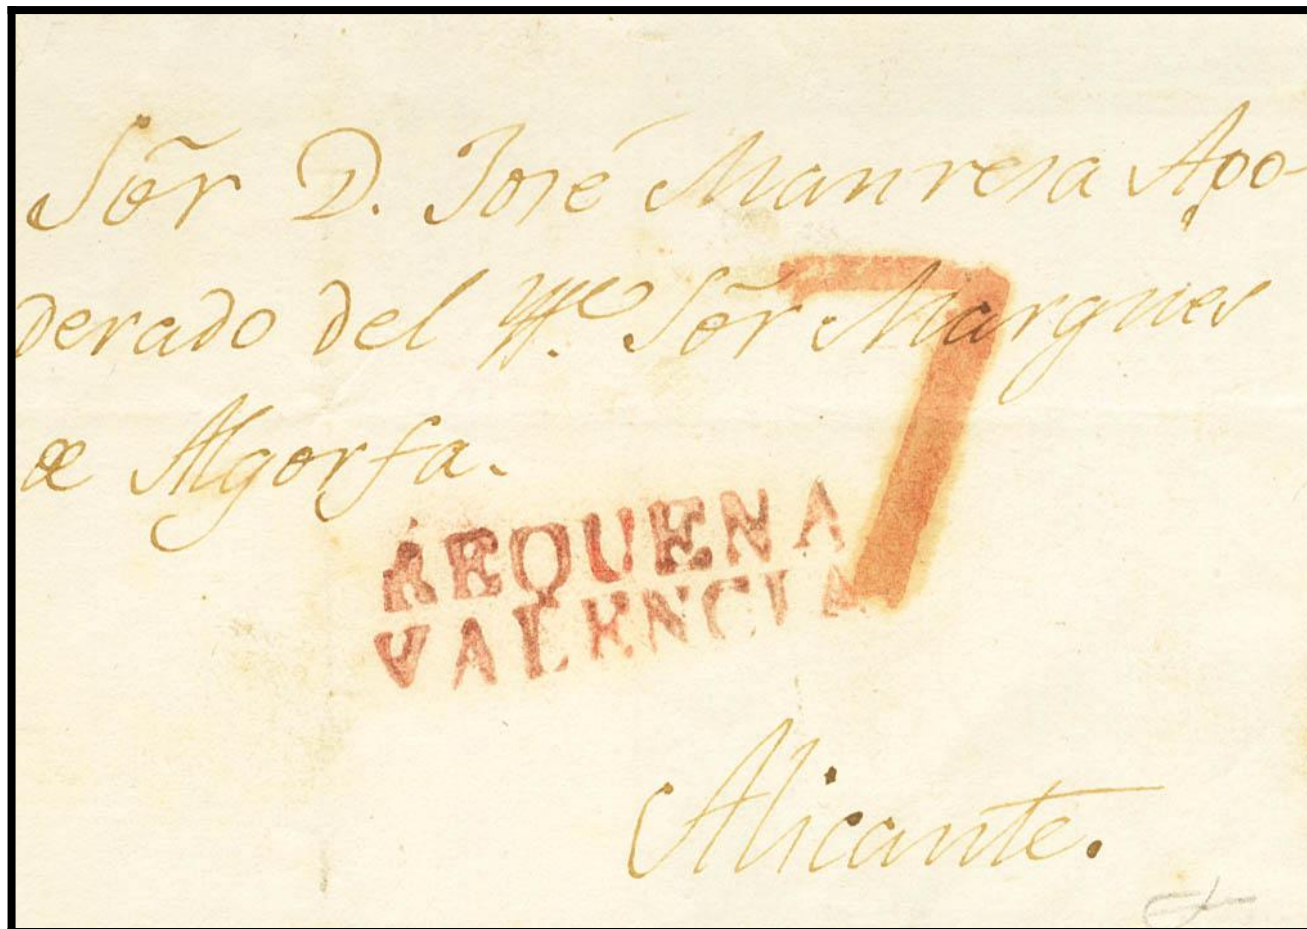 Sõr D. José Manresa Apo-
derado del Yll.e Sõr. Marques
de Algorfa.
7
REQUENA
VALENCIA
Alicante.